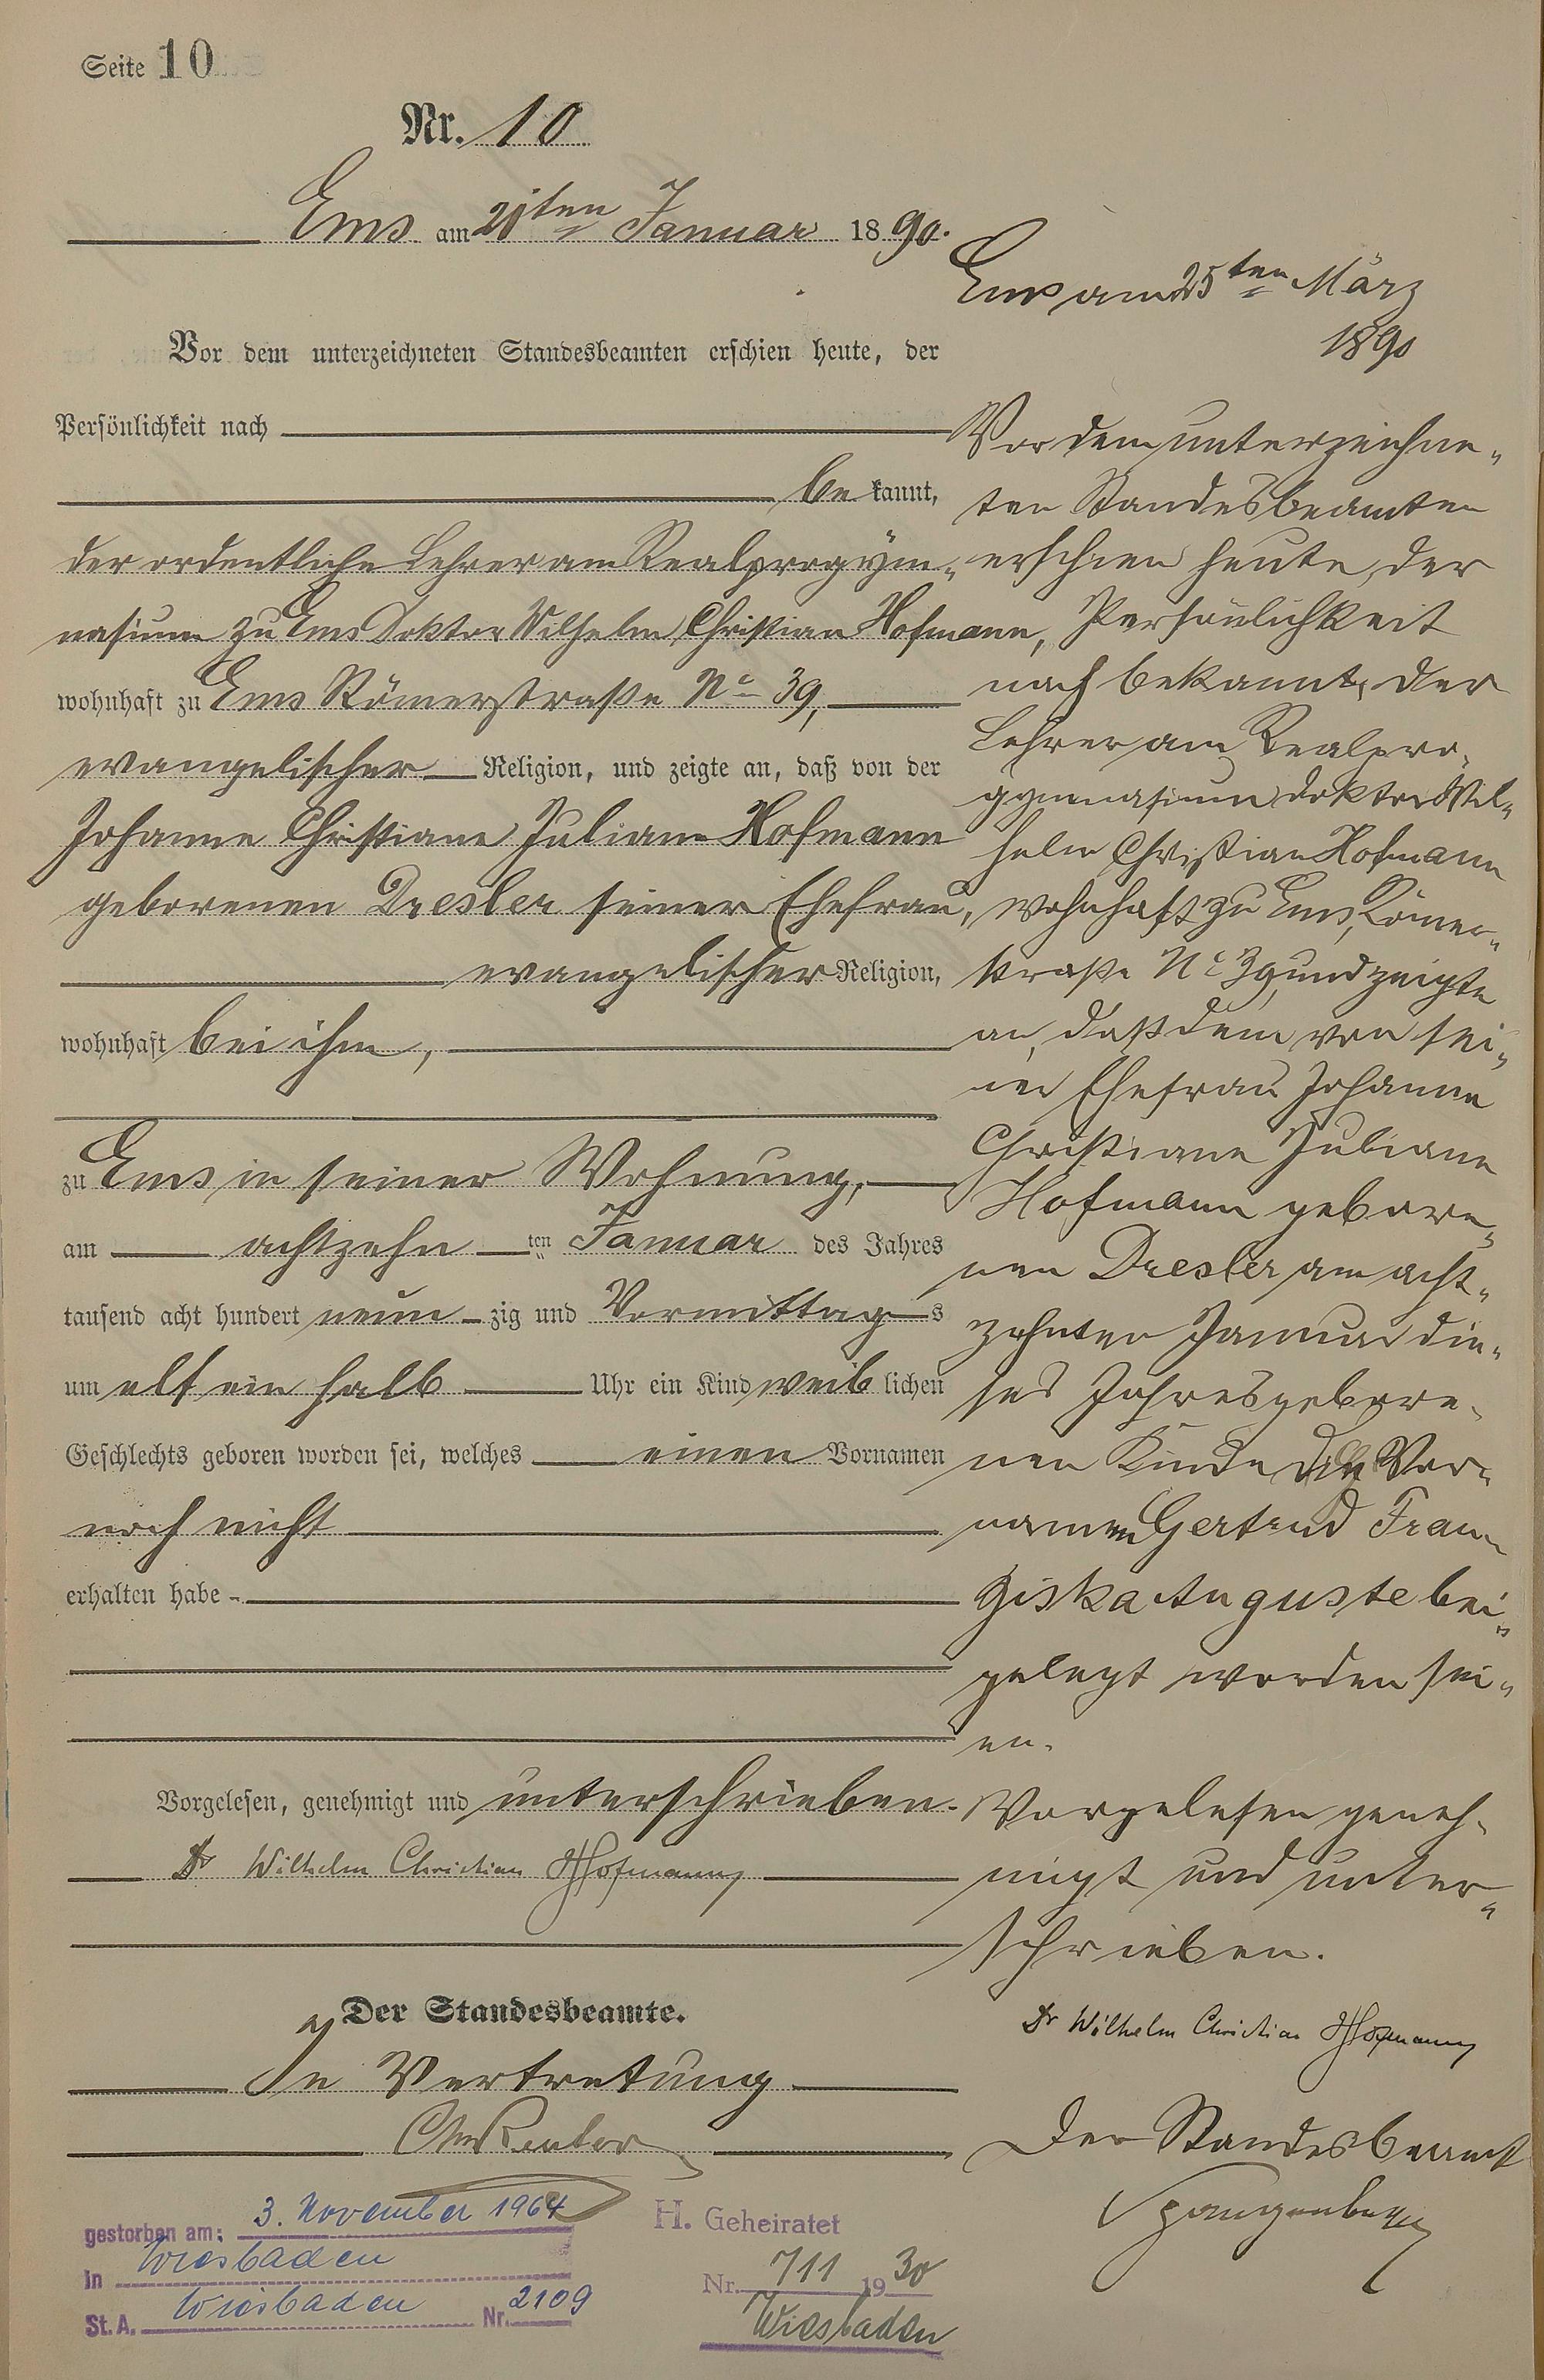 Seite 10
Nr. 10
Ems am 20ten Januar 1890.
Vor dem unterzeichneten Standesbeamten erschien heute, der
Persönlichkeit nach
be kannt,
der ordentliche Lehrer am Realprogym-
nasium zu Ems Doktor Wilhelm Christian Hofmann,
wohnhaft zu Ems Römerstraße No 39,
evangelischer Religion, und zeigte an, daß von der
Johanne Christiane Juliane Hofmann
geborenen Dresler seiner Ehefrau,
evangelischer Religion,
wohnhaft bei ihm,
zu Ems in seiner Wohnung,
am achtzehn ten Januar des Jahres
tausend acht hundert neun zig und Vormittag s
um elf ein halb Uhr ein Kind weib lichen
Geschlechts geboren worden sei, welches einen Vornamen
noch nicht
erhalten habe
Vorgelesen, genehmigt und unterschrieben.
Dr Wilhelm Christian Hofmann
Der Standesbeamte.
In Vertretung
Ems am 25ten März
1890
Vor dem unterzeichne-
ten Standesbeamten
erschien heute, der
Persönlichkeit
nach bekannt, der
Lehrer am Realpro-
gymnasium Doktor Wil-
helm Christian Hofmann
wohnhaft zu Ems, Römer-
straße No 39 und zeigte
an, daß dem von sei-
ner Ehefrau Johanne
Christiane Juliane
Hofmann gebore-
nen Dresler am acht-
zehnten Januar die-
ses Jahres gebore-
nen Kinde die Vor-
namen Gertrud Fran-
ziska Auguste bei-
gelegt worden sei-
en.
Vorgelesen geneh-
migt und unter-
schrieben.
Dr Wilhelm Christian Hofmann
Der Standesbeamt
Spangenberg
gestorben am: 3. November 1964
in Wiesbaden
St. A. Wiesbaden Nr. 2109
H. Geheiratet
Nr. 711 1930
Wiesbaden